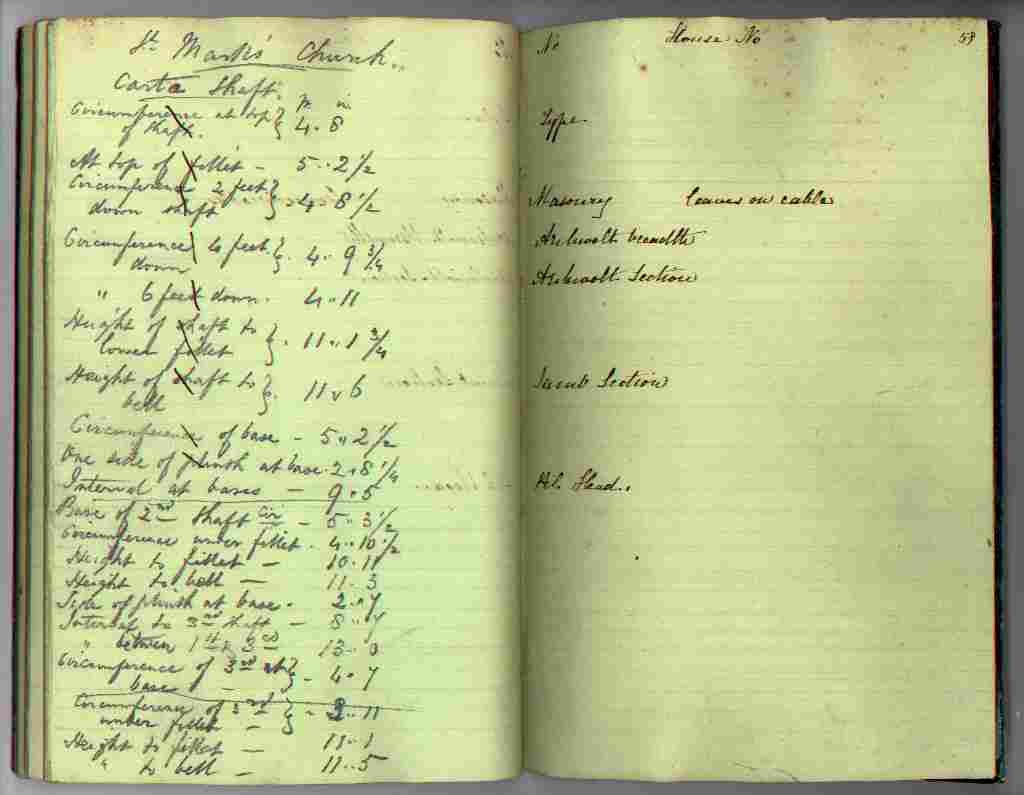 St Mark's Church.
Casta Shaft.
ft. in.
Circumference at top
of shaft. } 4.8
At top of fillet – 5..2 1/2
Circumference 2 feet
down shaft } 4 8 1/2
Circumference 4 feet
down }. 4. 9 3/4
" 6 feet down. 4.11
Height of shaft to
lower fillet }. 11.1 3/4
Height of shaft to
bell }. 11 . 6
Circumference of base – 5 " 2 1/2
One side of plinth at base. 2 . 8 1/4
Interval at bases – 9 . 5
Base of 2nd Shaft Cir – 5 " 3 1/2
Circumference under fillet. 4..10 1/2
Height to fillet – 10.11
Height to bell – 11 . 3
Side of plinth at base. 2 " 7
Interval to 3rd shaft – 8 " 7
" between 1st & 3rd 13 " 0
Circumference of 3rd at
base } – 4.7
Circumference of 3rd
under fillet – } – 3..11
Height to fillet – 11.1
" to bell – 11..5
No House No 58
Type.
Masonry leaves on cable
Archivolt breadth
Archivolt Section
Jamb Section
Al. Head.